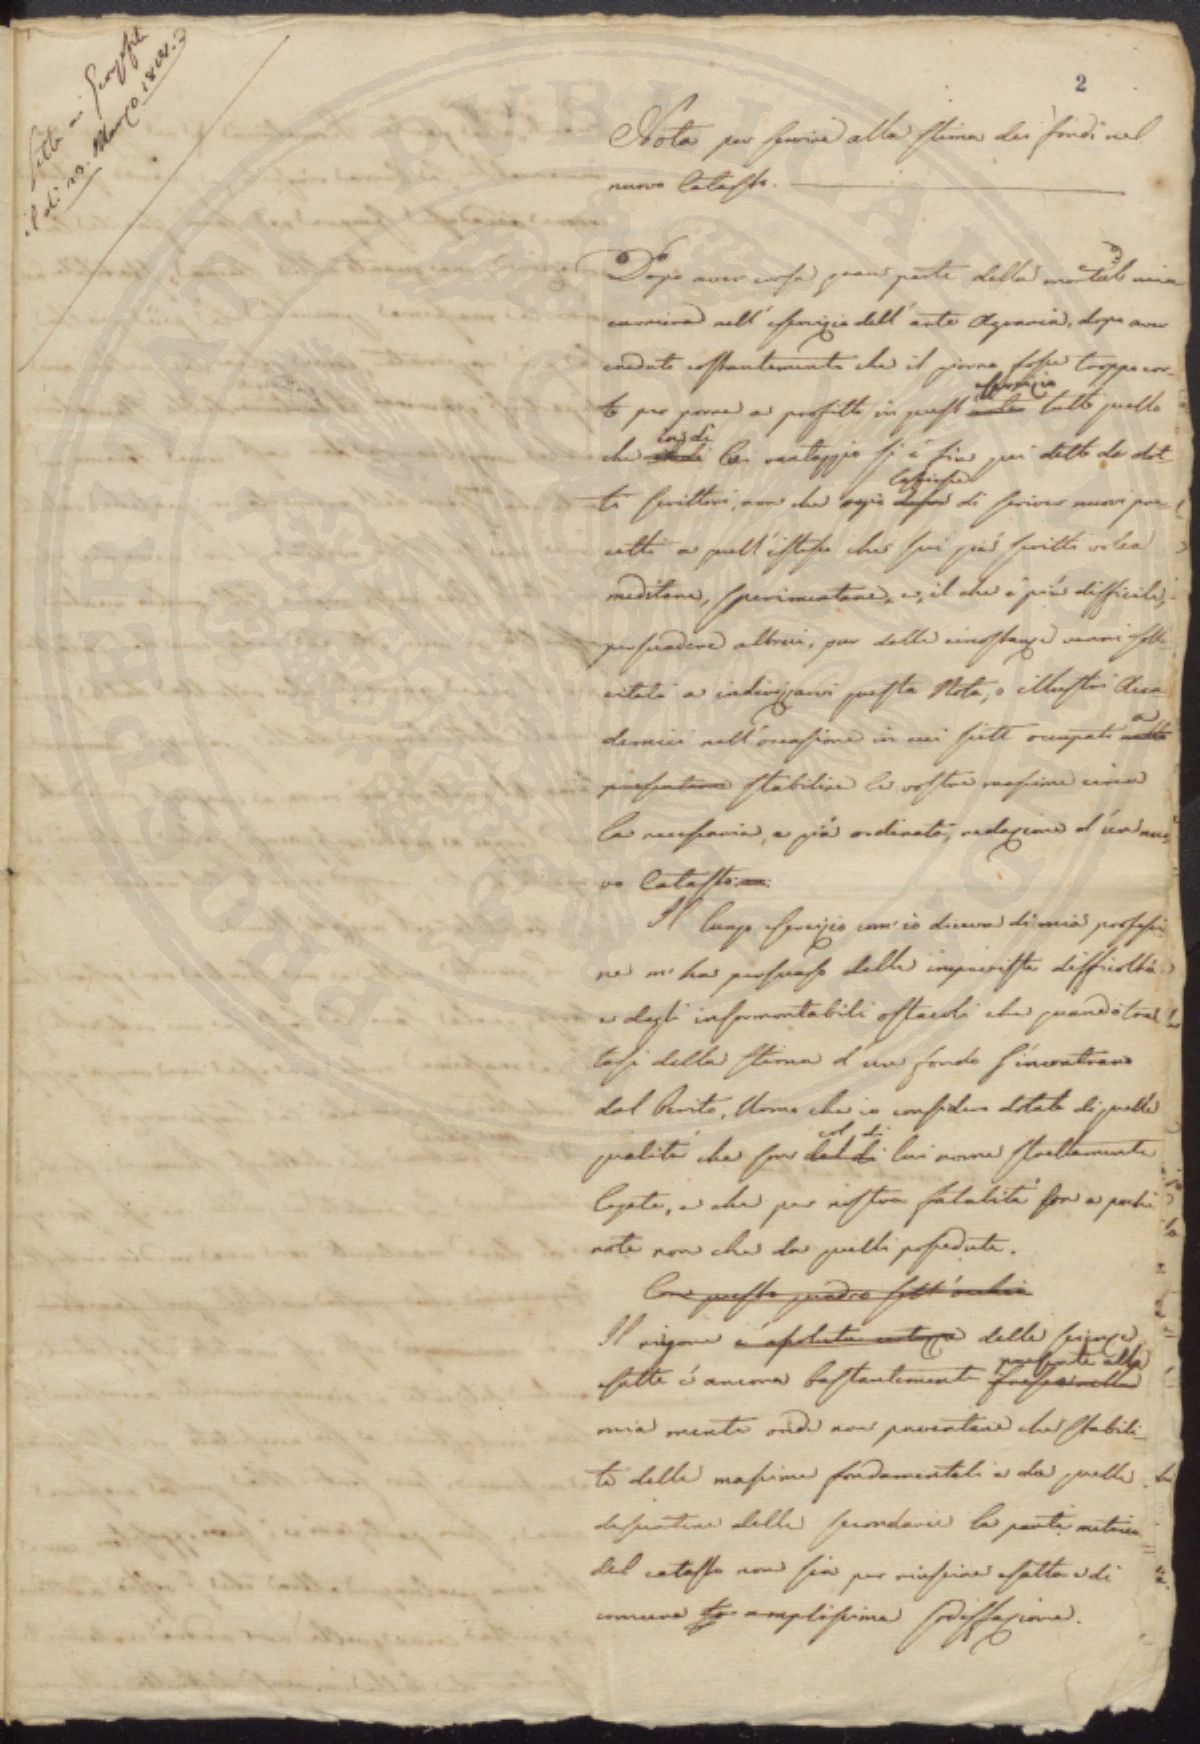 il di 13. Marzo 1808.
2
Nota per servire alla stima dei fondi nel
nuovo Catasto.
Dopo aver corsa gran parte della mortal mia
carriera nell'esercizio dell'arte Agraria, dopo aver
creduto costantemente che il giorno fosse troppo cor-
to per porre a profitto in quest' esercizio tutto quello
che in di lei vantaggio si è fin qui detto da dot-
ti scrittori, non che di scriver nuovi pre-
cetti a quell'istesso che sui già scritti volea
meditare, sperimentare, e, il che è più difficile,
persuadere altrui, pur delle circostanze vanni solle
citata a indirizzarvi questa Nota, o illustri Acca
demici nell'occasione in cui siete occupati a
stabilire le vostre massime circa
la necessaria, e già ordinata, redazione d'un nuo-
vo Catasto.
Il lungo esercizio com'io diceva di mia professio-
ne m'ha persuaso delle impreviste difficoltà
e degli insormontabili ostacoli che quando trat
tasi della stima d'un fondo s'incontrano
dal Perito, Uomo che io considero dotato di quelle
qualità che son col di lui nome strettamente
legate, e che per nostra fatalità son a pochi
note non che da quelli possedute.
Con questo quadro sott'occhio
Il rigore e assoluta certezza delle scienze
esatte è ancora bastantemente presente alla
mia mente onde non paventare che stabili-
te delle massime fondamentali e da quelle
delle secondarie la parte
del catasto non sia per riuscire esatta e di
comune amplissima sodisfazione.